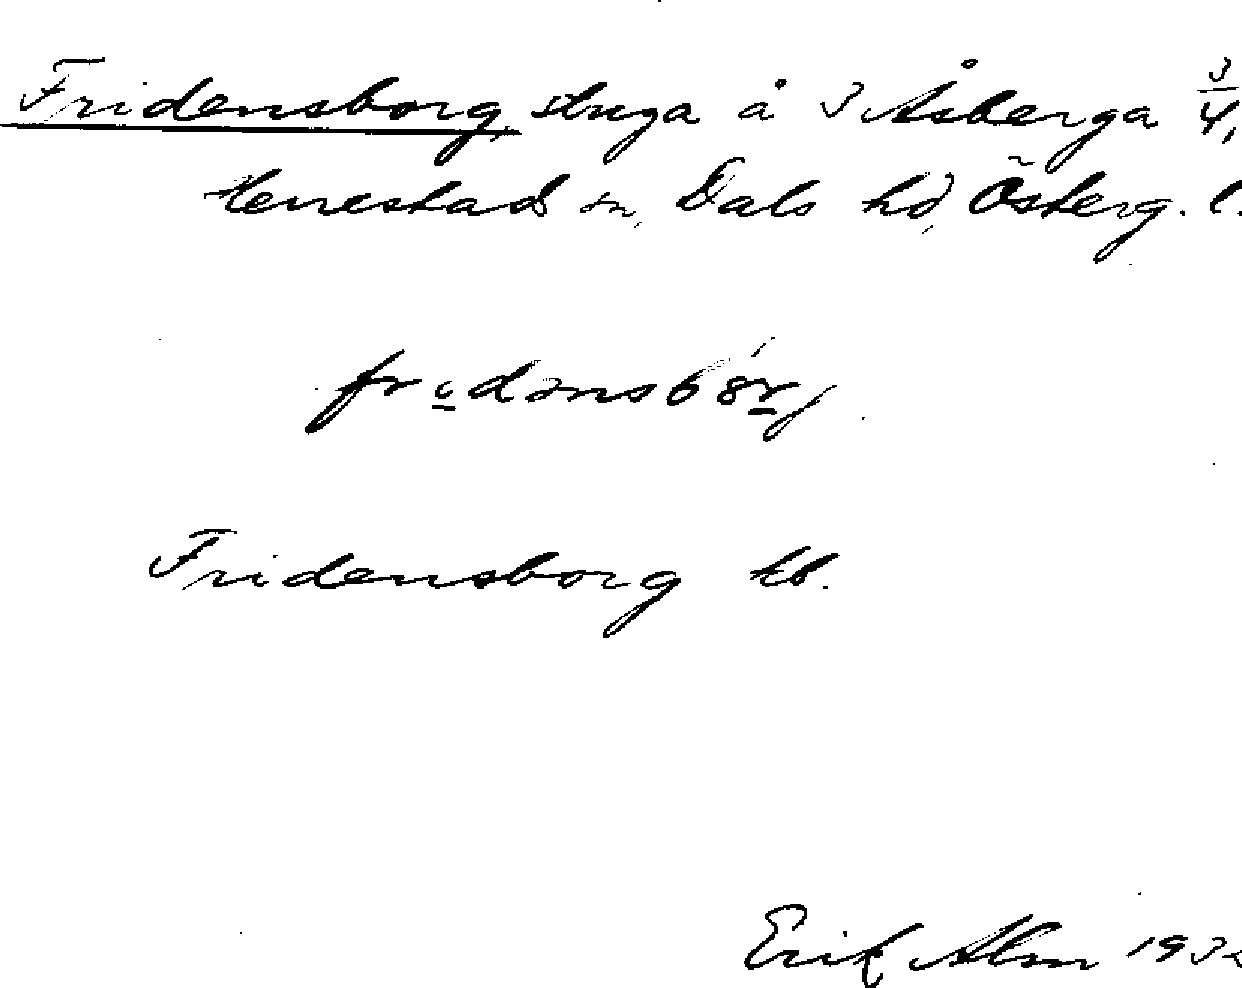 Fridensborg, stuga å 3 Åsberga 3/4,
Herrestad sn, Dals hd, Österg. l.
Fridensborg kb.
Erik Alm 193